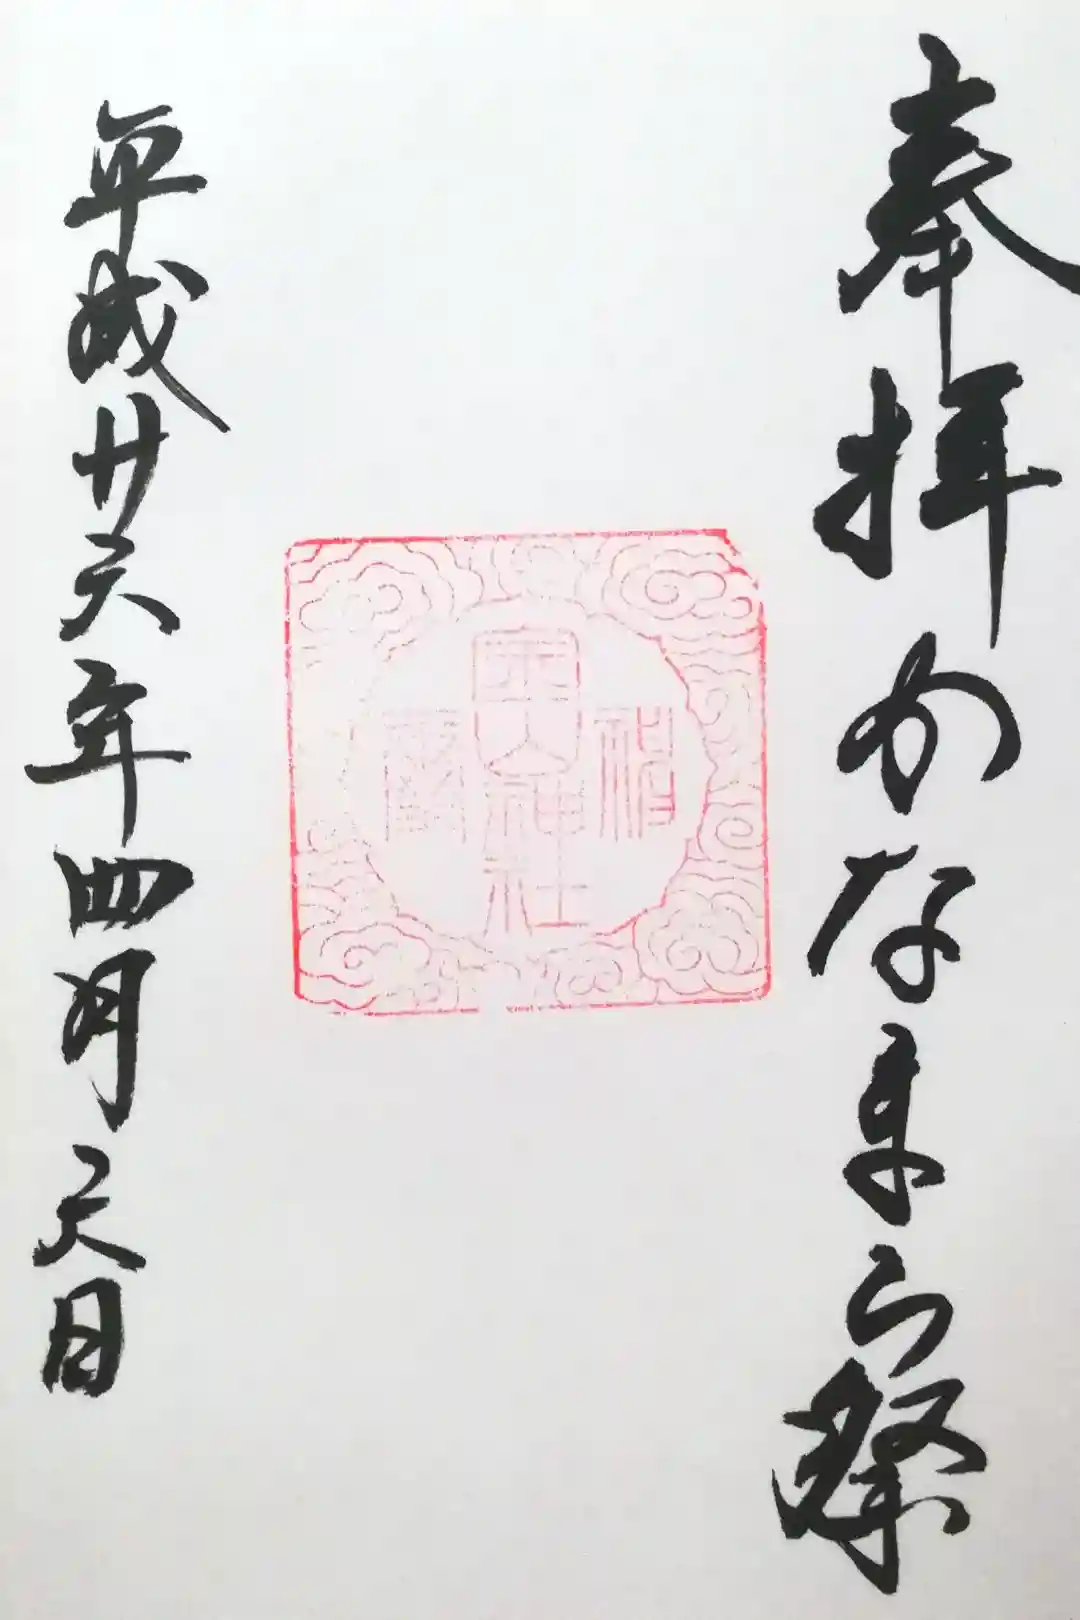 奉拝かなまら祭
金山神社
平成廿六年四月六日